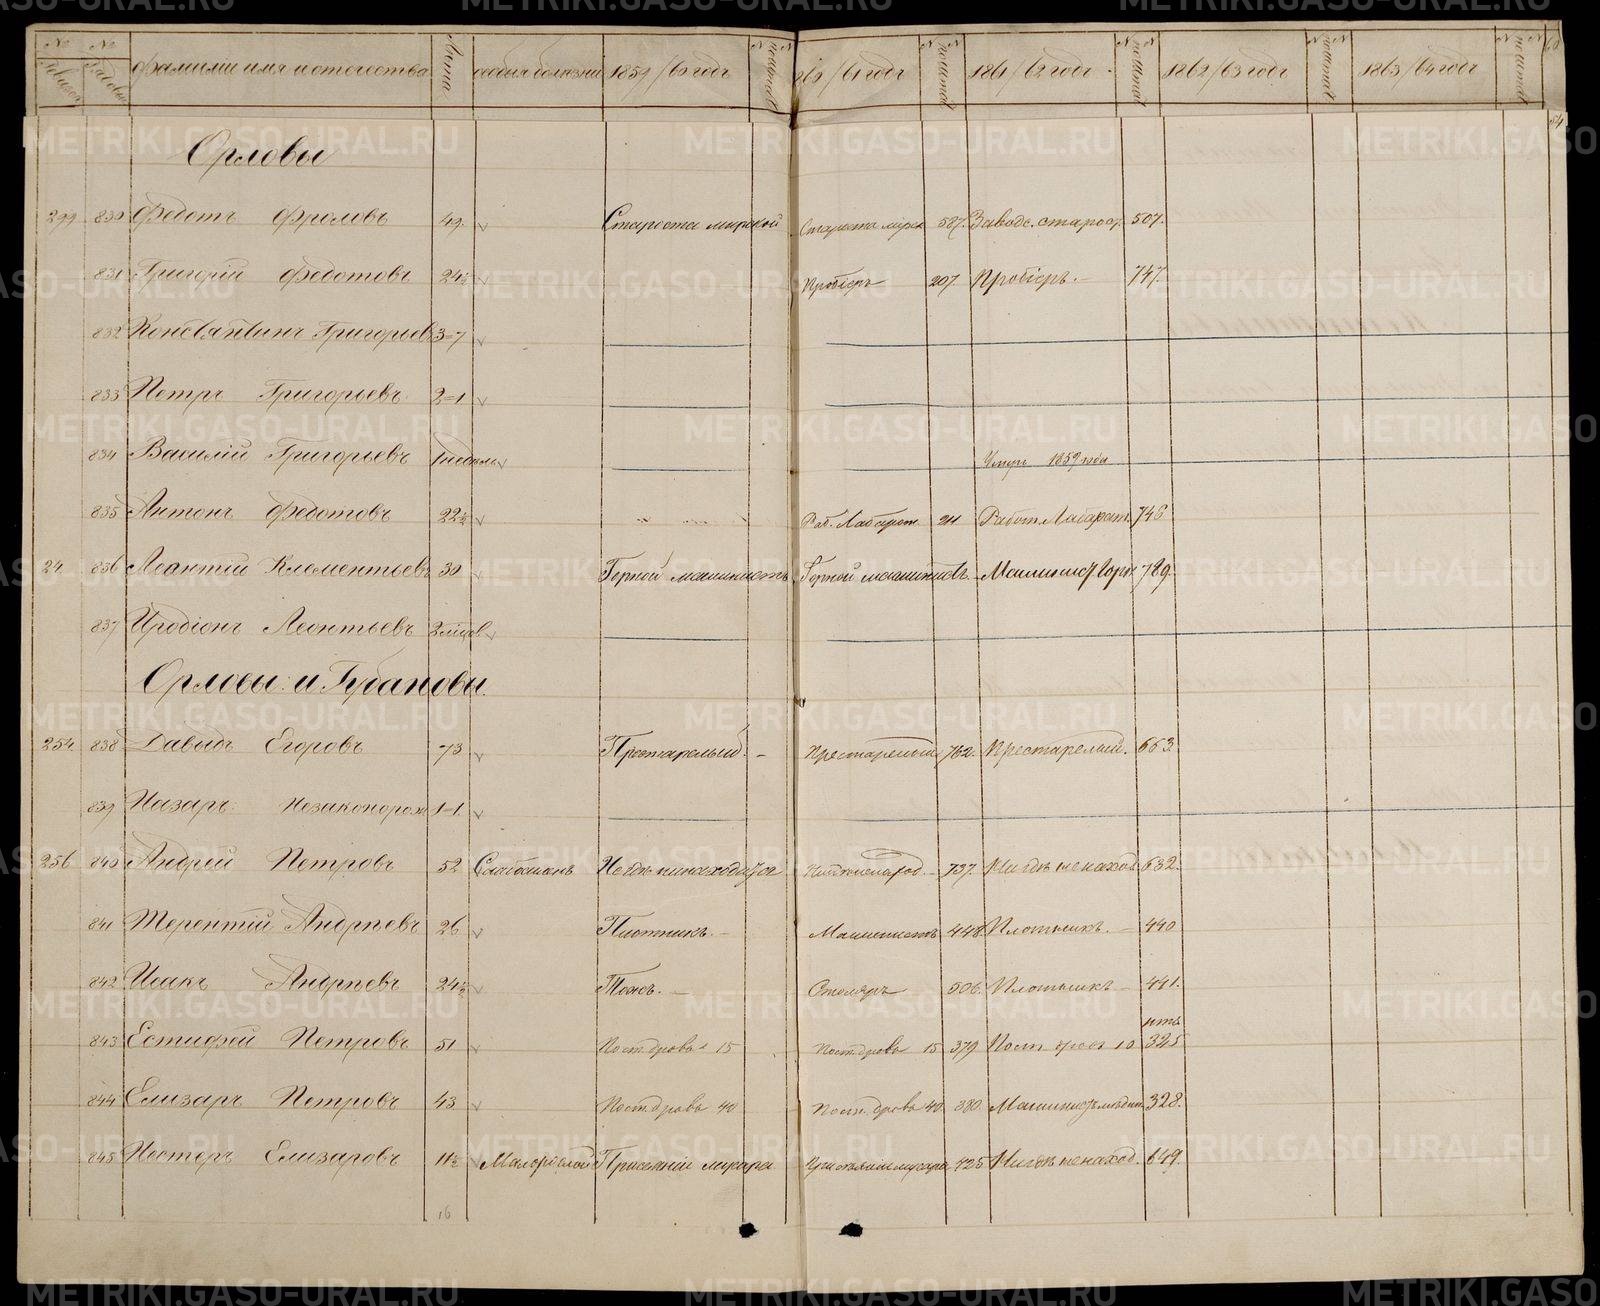 № № фамилии имя и отечества Лета особыя болезни 1859/60 годъ № по штат 1860/61 годъ № по штат 1861/62 годъ № по штат 1862/63 годъ № по штат 1863/64 годъ № по штат
54
Орловы
299 830 Федотъ Фроловъ 49. Староста мирской Староста мірск 587. Заводс. старос. 507.
831 Григорій Федотовъ 24½ Пробіеръ 207 Пробіеръ. 747.
832 Константинъ Григорьевъ 3=7
833 Петръ Григорьевъ 2=1
834 Василій Григорьевъ Умеръ 1859 года
835 Антонъ Федотовъ 22½ Раб. Лаборат. 211 Работ. Лаборат. 746
24 836 Леонтій Клементьевъ 30 Горной машинистъ Горной машинистъ Машинист горн 789.
837 Иродіонъ Леонтьевъ
Орловы и Губановы
254 838 Давыдъ Егоровъ 73 Престарелый. Престарелый 762. Престарелый. 663.
839 Назаръ Незаконорож 1=1
256 840 Андрей Петровъ 52 Нигдѣ ненаходится Нигдѣ ненаход. 737. Нигдѣ ненаход. 632.
841 Терентій Андреевъ 26 Плотникъ. Машинистъ 448. Плотникъ. 440
842 Исакъ Андреевъ 24½ Тожъ. Столяръ 506. Плотникъ 441.
843 Естифей Петровъ 51 Пост. дрова 15 Пост. дрова 15 379 Пост. дров 10 325
844 Елизаръ Петровъ 43 Пост. дрова 40 Пост. дрова 40. 380. 328.
845 Несторъ Елизаровъ 11½ Малорослой 425 Нигдѣ ненаход. 649.
16
METRIKI.GASO-URAL.RU